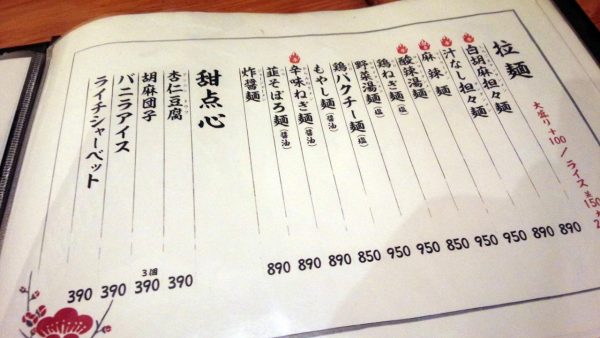 大盛り+100/ライス
拉麺
白胡麻担々麺 890
汁なし担々麺 890
麻辣麺 950
酸辣湯麺 950
鶏ねぎ麺(塩) 850
野菜湯麺(塩) 950
鶏パクチー麺(塩) 950
もやし麺(醤油) 850
辛味ねぎ麺(醤油) 890
韮そぼろ麺(醤油) 890
炸醤麺 890
甜点心
杏仁豆腐 390
胡麻団子 3個 390
バニラアイス 390
ライチシャーベット 390